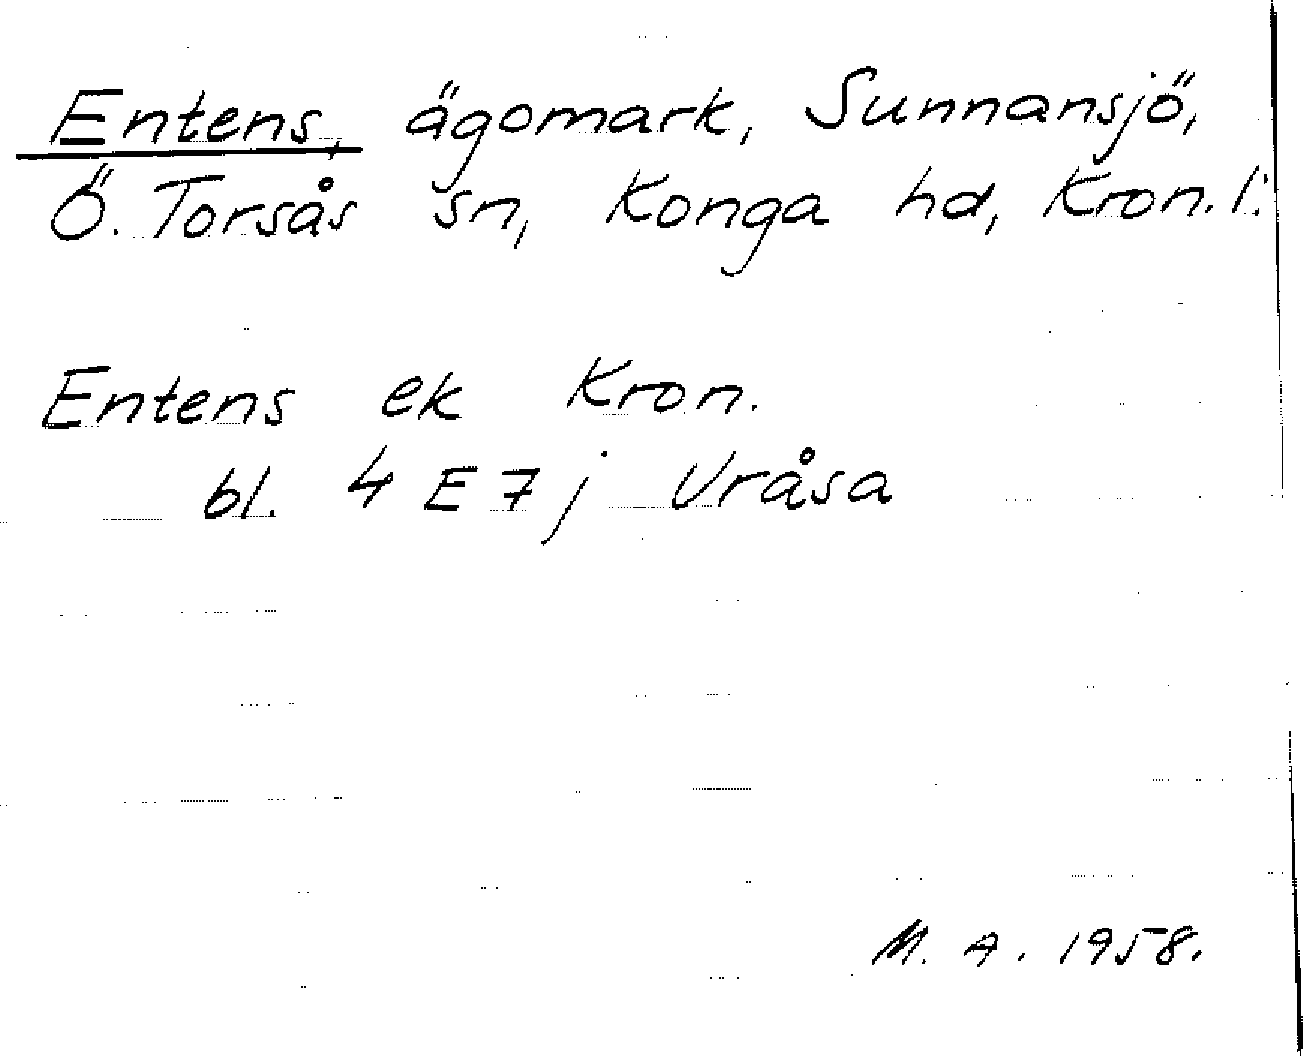 Entens, ägomark, Sunnansjö,
Ö. Torsås sn, Konga hd, Kron. l.
Entens ek Kron.
bl. 4 E 7 j Uråsa
M. A. 1958.